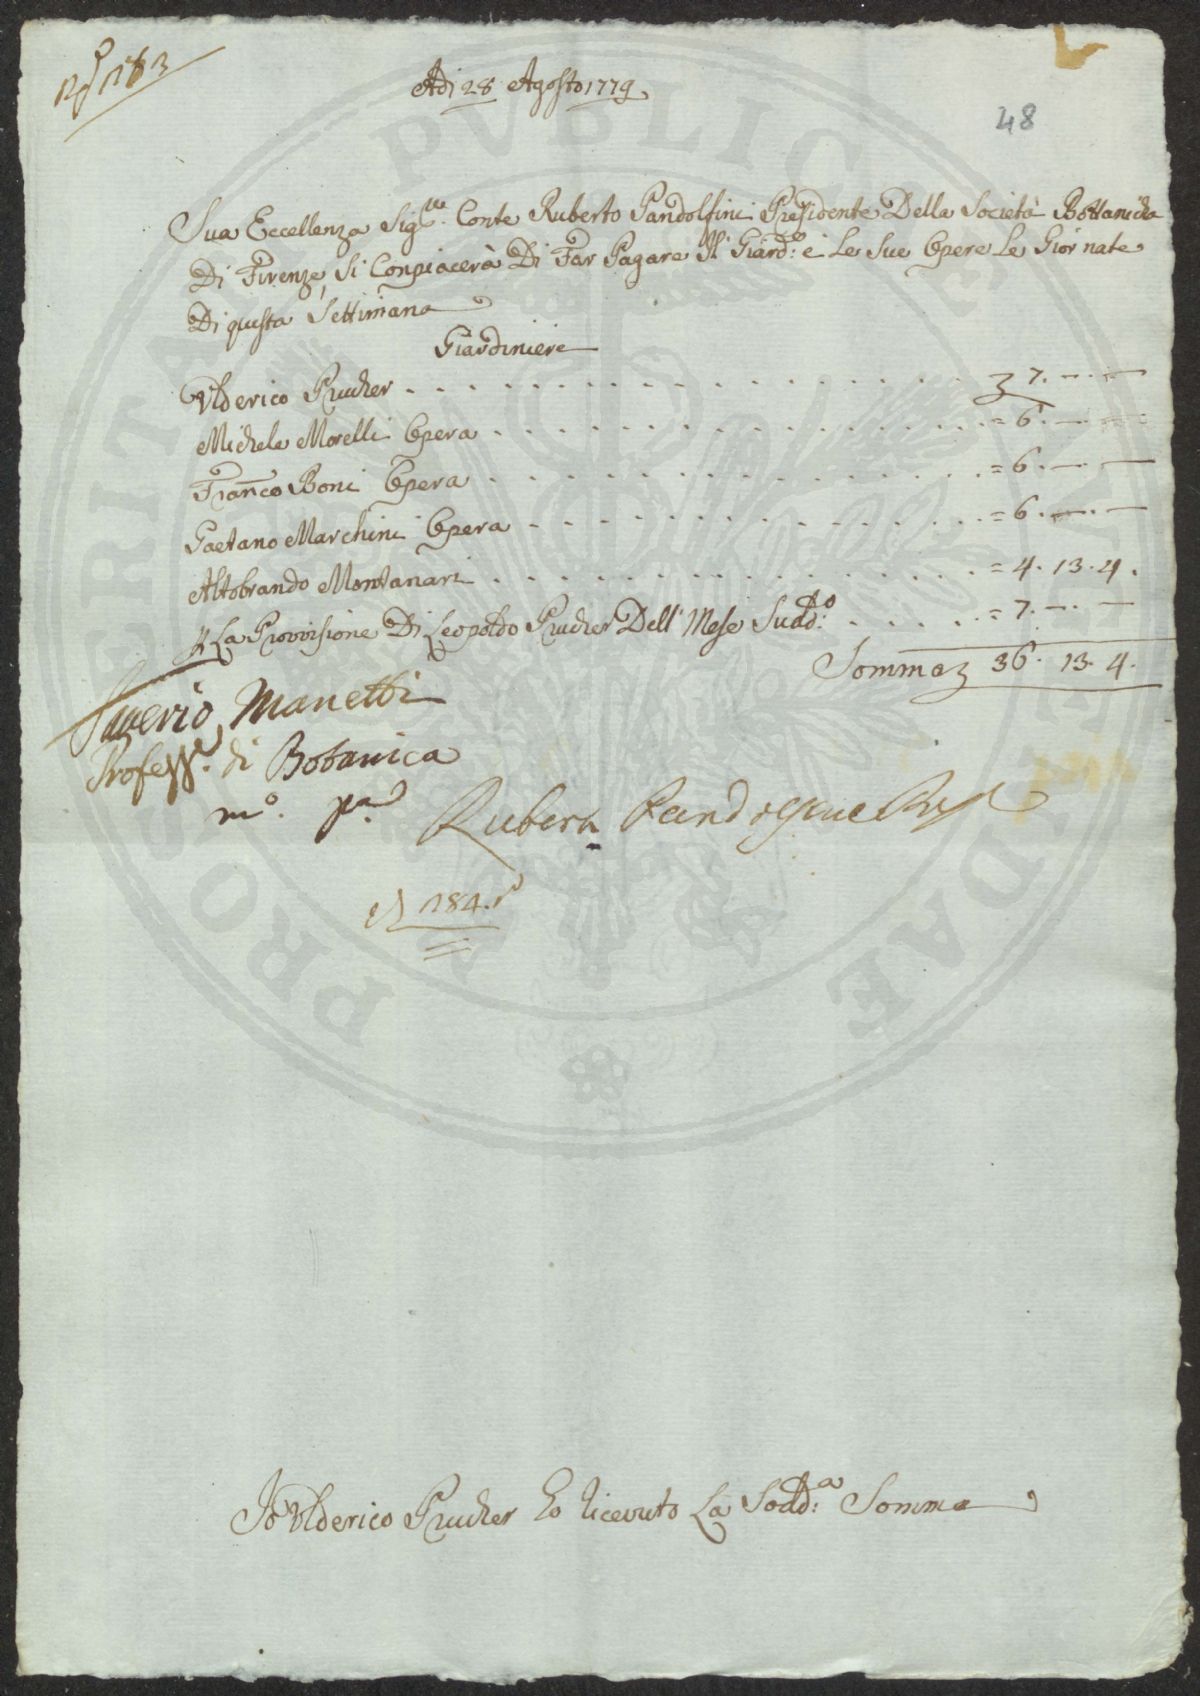 N° 183
Adi 28 Agosto 1779
48
Sua Eccellenza Sig.re Conte Ruberto Pandolfini Presidente Della Società Bottanicha
Di Firenze, Si Conpiacerà Di Far Pagare Il Giard:e e Le Sue Opere Le Giornate
Di questa Settimana
Giardiniere
Ulderico Prucher . . . . . . . . . . . . . . . . . . 7. — . —
Michele Morelli Opera . . . . . . . . . . . . . . . . = 6. — . —
Franco Boni Opera . . . . . . . . . . . . . . . . = 6. — . —
Gaetano Marchini Opera . . . . . . . . . . . . . . = 6. — . —
Altobrando Montanari . . . . . . . . . . . . . . . = 4. 13. 4.
P La Provvisione Di Leopoldo Prucher Dell' Mese Sudd:o . . . . . = 7. — . —
Somma 36. 13. 4.
Saverio Manetti
Profess.e di Botanica
m.o p.a
Ruberto Pandolfini
184.
Io Ulderico Prucher ho ricevuto La Sodd:a Somma
PROSPERITATI PVBLICAE AVGENDAE